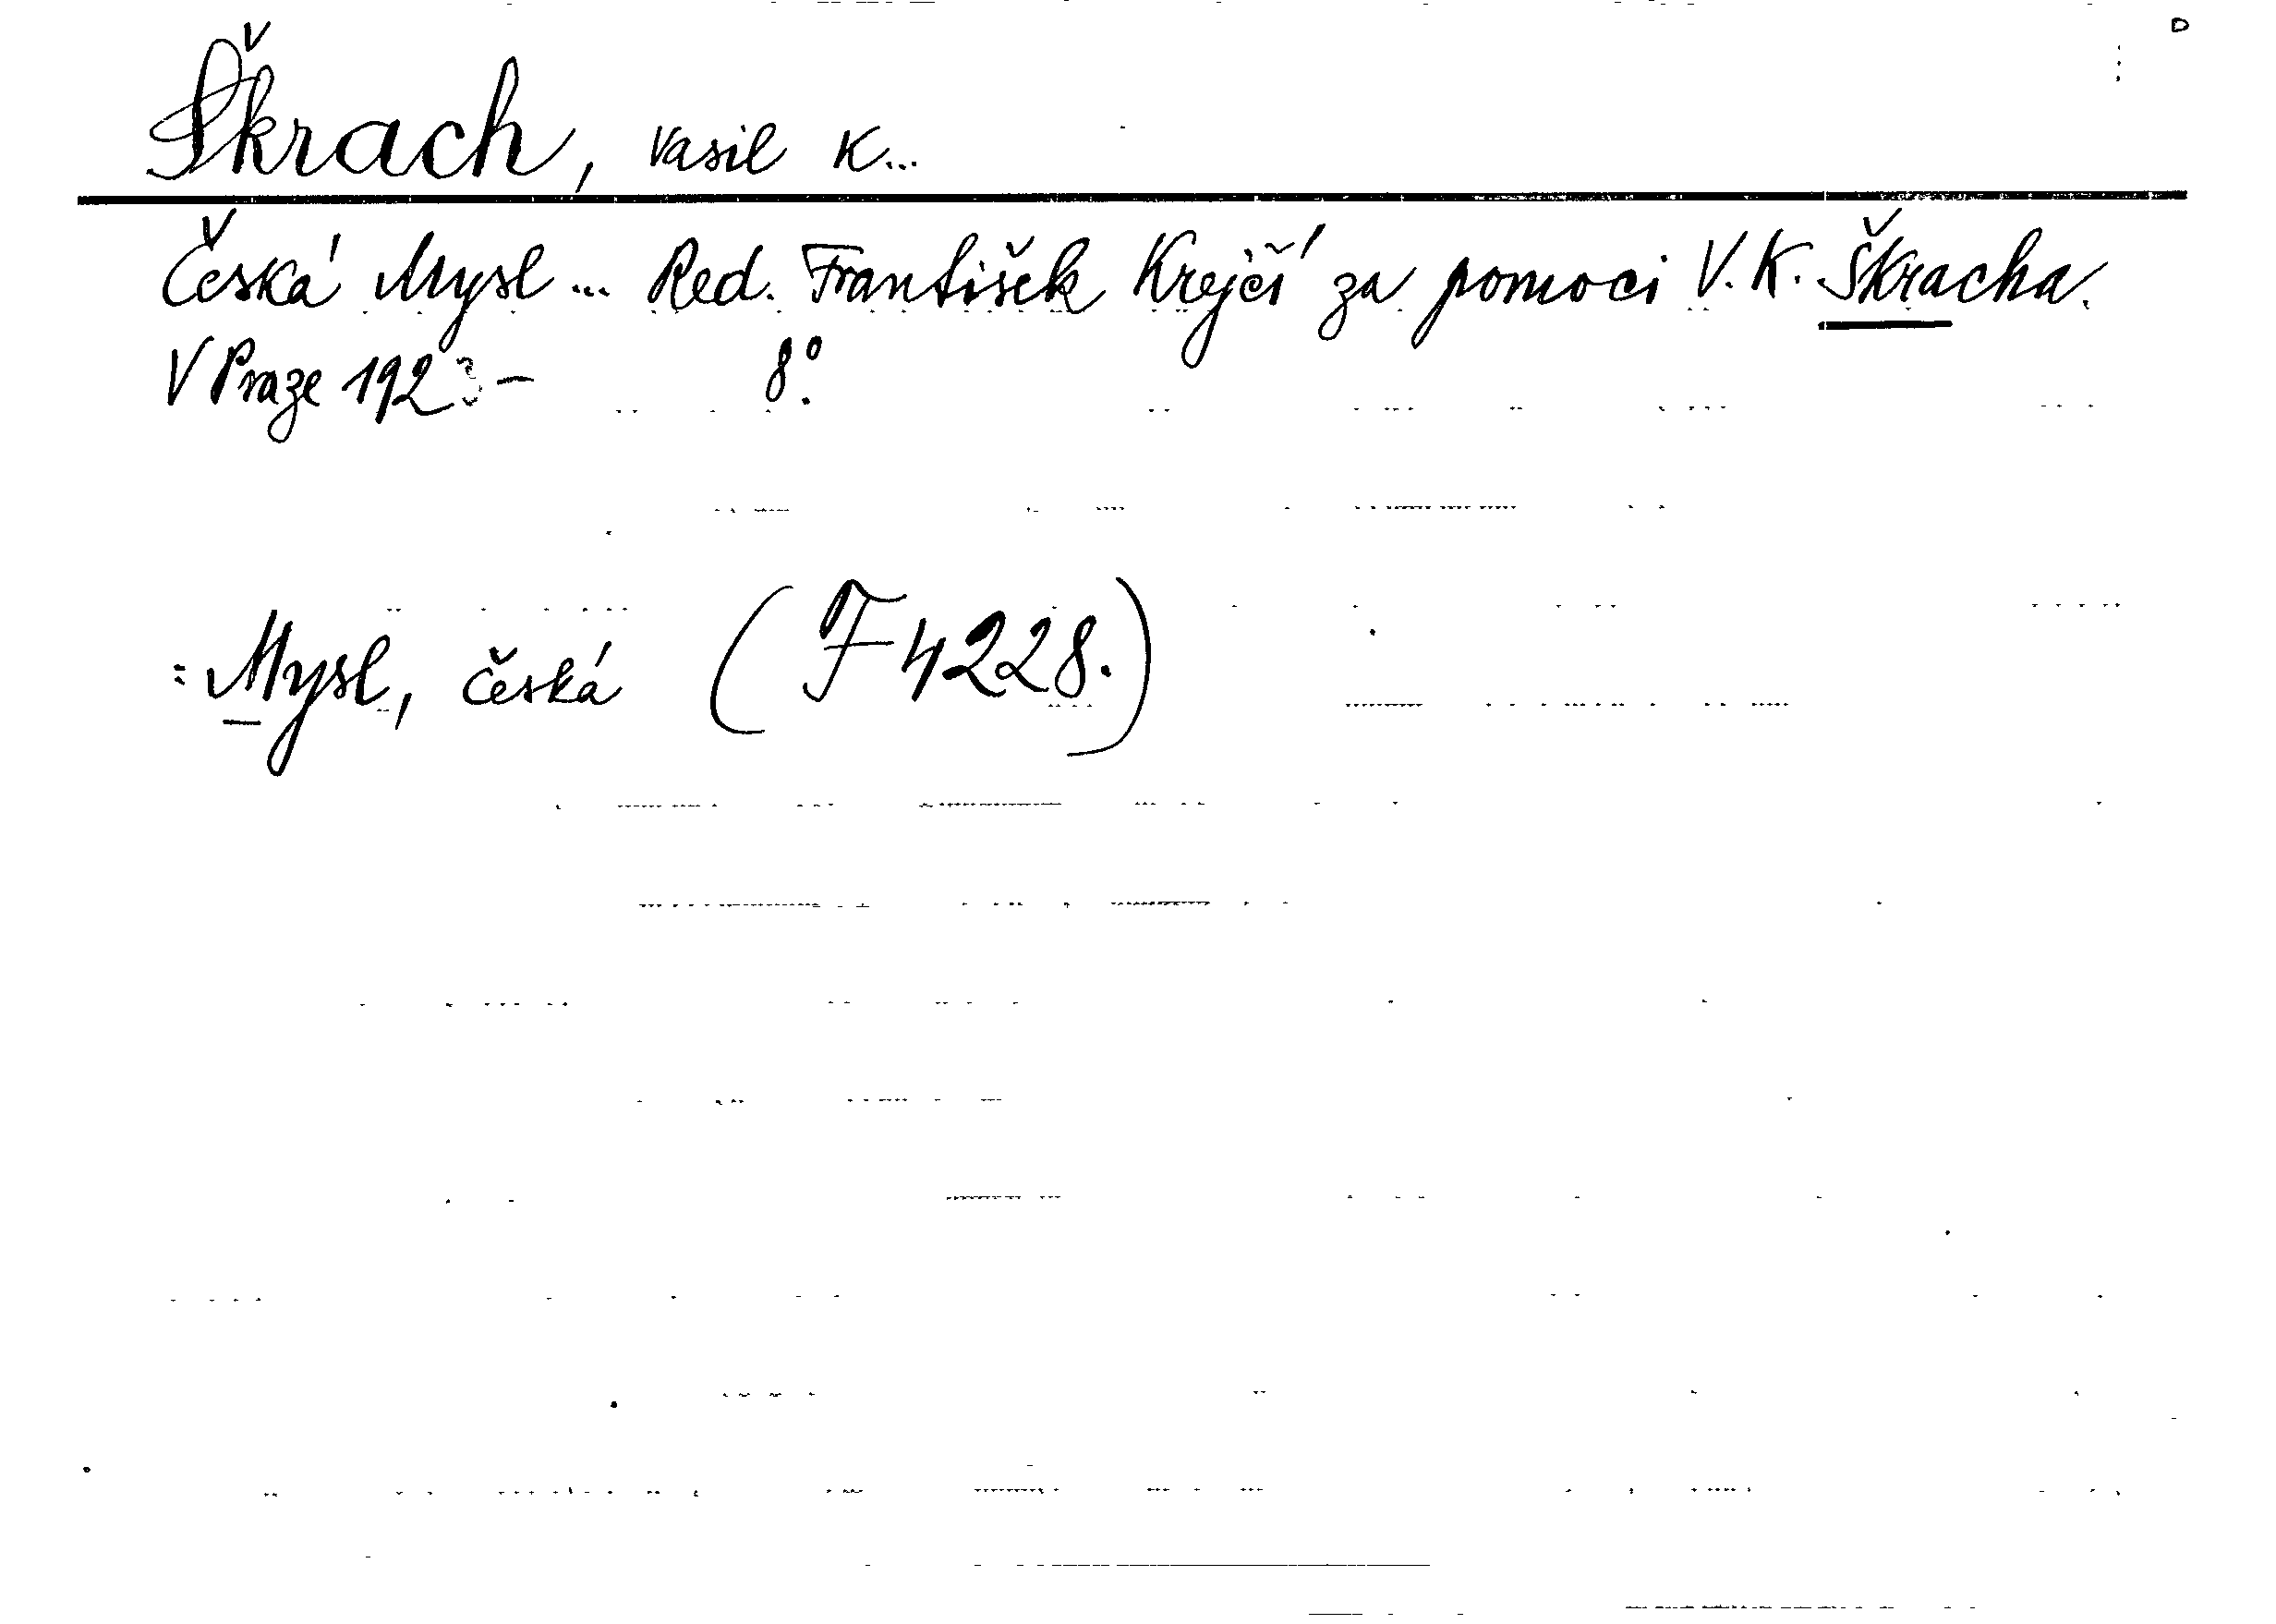 Škrach, Vasil K...
Česká Mysl... Red. František Krejčí za pomoci V. K. Škracha.
V Praze 1923- 8º.
: Mysl, česká (F 4228.)